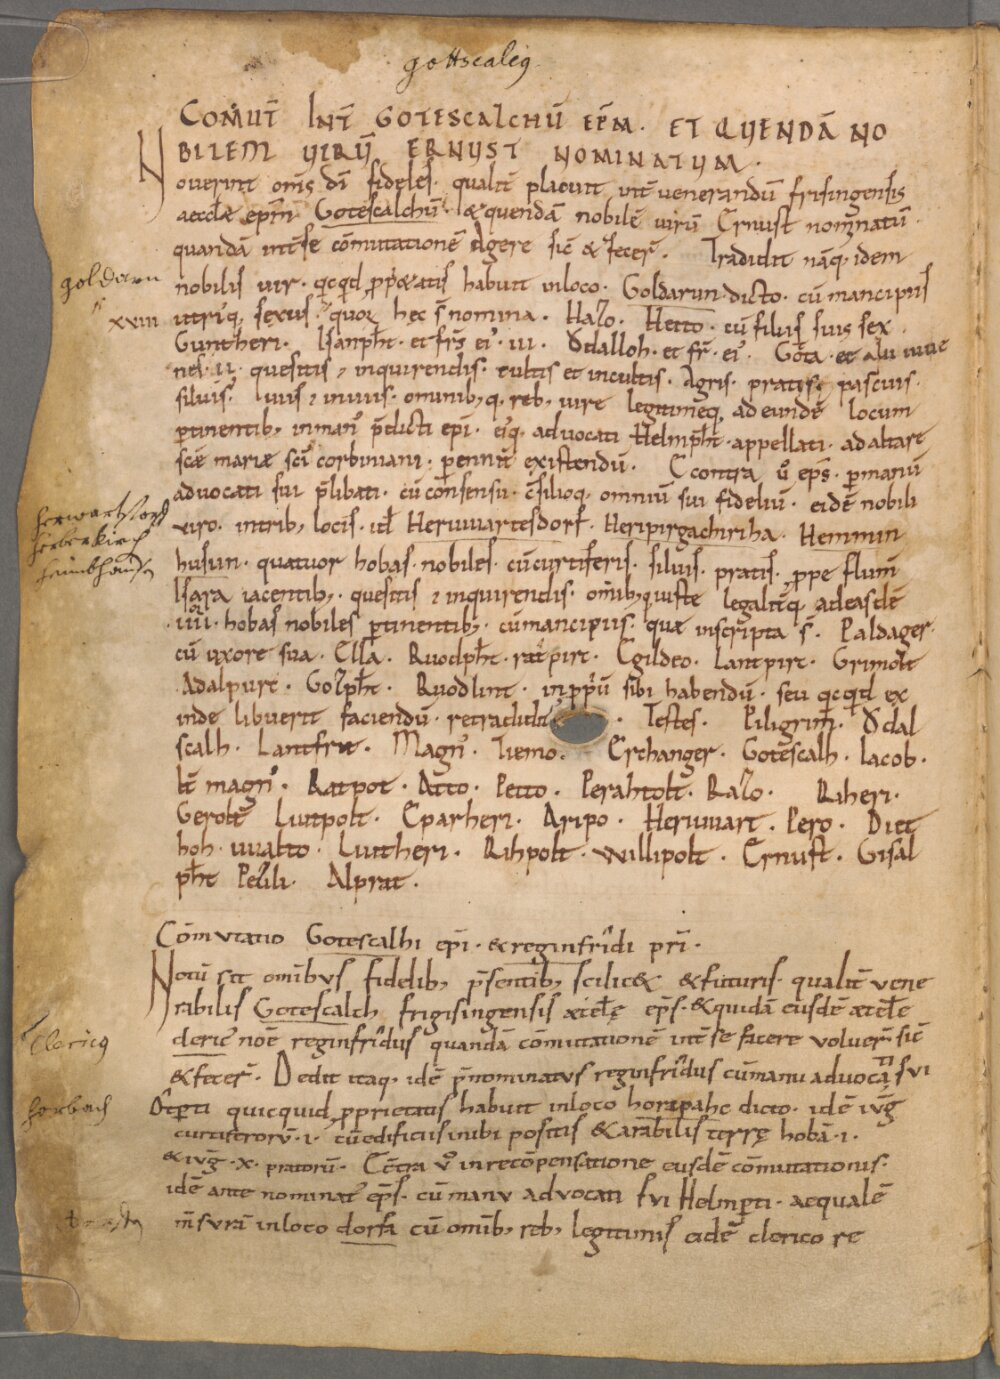 gottscalcꝯ
COM̄UT̄ INT̄ GOTESCALCHŪ EP̄M. ET QUENDĀ NO
BILEM UIRŪ ERNUST NOMINATUM.
Nouerint om̄s dī fideles. qualit̄ placuit int̄ uenerandū frisingensis
aeccłae ep̄m Gotescalchū. &quendā nobilē uirū Ernust nominatū
quandā int̄ se cōmutationē Agere sic̄ & fecer̄. Tradidit nāq. idem
goldarn
nobilis uir. qcqd p̱pri&atis habuit inloco. Goldarun. dicto. cū mancipiis
xxiii
utriq, sexus. quoꝝ hęc s̄ nomina. Hazo. Hetto. cū filiis suis sex.
Guntheri. Isanpħt. et fr̄s ei᾽. iii. Odalloh. et fr̄. ei᾽. Gōta. et alii iuue
nes. ii. quesitis ⁊ inquirendis. cultis et incultis. Agris. pratis. pascuis.
siluis. uiis ⁊ inuiis. omnib,q. reb, iure legitimeq, ad eundē locum
ꝑtinentib, inman᾽ p̄dicti ep̄i. ei᾽q, aduocati Helmpħt. appellati. ad altare
scę̄ mariae sc̄i corbiniani. ꝑennit̄ existendū. Econtra ů ep̄s. ꝑmanū
aduocati sui p̄libati. cū consensu. c̄silioq. omniū sui fideliū. eidē nobili
herwartstorff
herberkirch
haimbhausn
uiro. intrib, locis. id̄ Heriuuartesdorf. Heripirgachiriha. Hemmin
husun. quatuor hobas. nobiles. cūcurtiferis. siluis. pratis. p̱pe flum̄
Isara iacentib,. quesitis ⁊ inquirendis. omīb, q iuste legalit̄q, adeasdē
.iiii. hobas nobiles ꝑtinentib,. cū mancipiis. quae inscripta s̄. Paldager.
cū uxore sua. Ella. Ruodpħt. ratpirt. Egildeo. Lantpirt. Grimolt
Adalpurt. Golpħt. Ruodlint. inp̱priū sibi habendū. seu qcqd ex
inde libuerit faciendū. retradidit. Testes. Piligrim. Odal
scalh. Lantfrit. Magn᾽. Tiemo. Erchanger. Gotescalh. Iacob.
It̄ magn᾽. Ratpot. Atto. Petto. Perahtolt. Razo. Riheri.
Gerolt Liutpolt. Eparheri. Aripo. Heriuuart. Pero. Diet
hoh. uualto. Liutheri. Rihpolt. willipolt. Ernust. Gisal
pħt Pezili. Alprat.
Cōmutatio Gotescalhi ep̄i. &reginfridi pr̄i.
Notū sit omīb&#x75;s fidelib, p̄sentib, scilic& &futuris. qualit̄ uene
rabilis Gotescalch frigisingensis aeccłę ep̄s. &quidā eiusdē aeccłę
Clericꝯ
cleric᾽ nōe reginfridus quandā cōmutationē int̄ se facere voluer̄. sic̄
&fecer̄. Dedit itaq, idē p̄nominatus reginfridus cū manu aduocati sui
horbach
Otꝑti quicquid p̱prietatis habuit inloco horapahc dicto. idē iuḡ
curtiferorū. i. cū edificiis inibi positis &arabilis terrę hobā. i.
&iuḡ. x. pratorū. Ec̄tra ů inrecōpensatione eiusdē cōmutationis.
idē ante nominat᾽ ep̄s. cū manu aduocati sui Helmꝑti. aequalē
m̄surā inloco dorfa cū omīb, reb, legitimis eidē clerico re